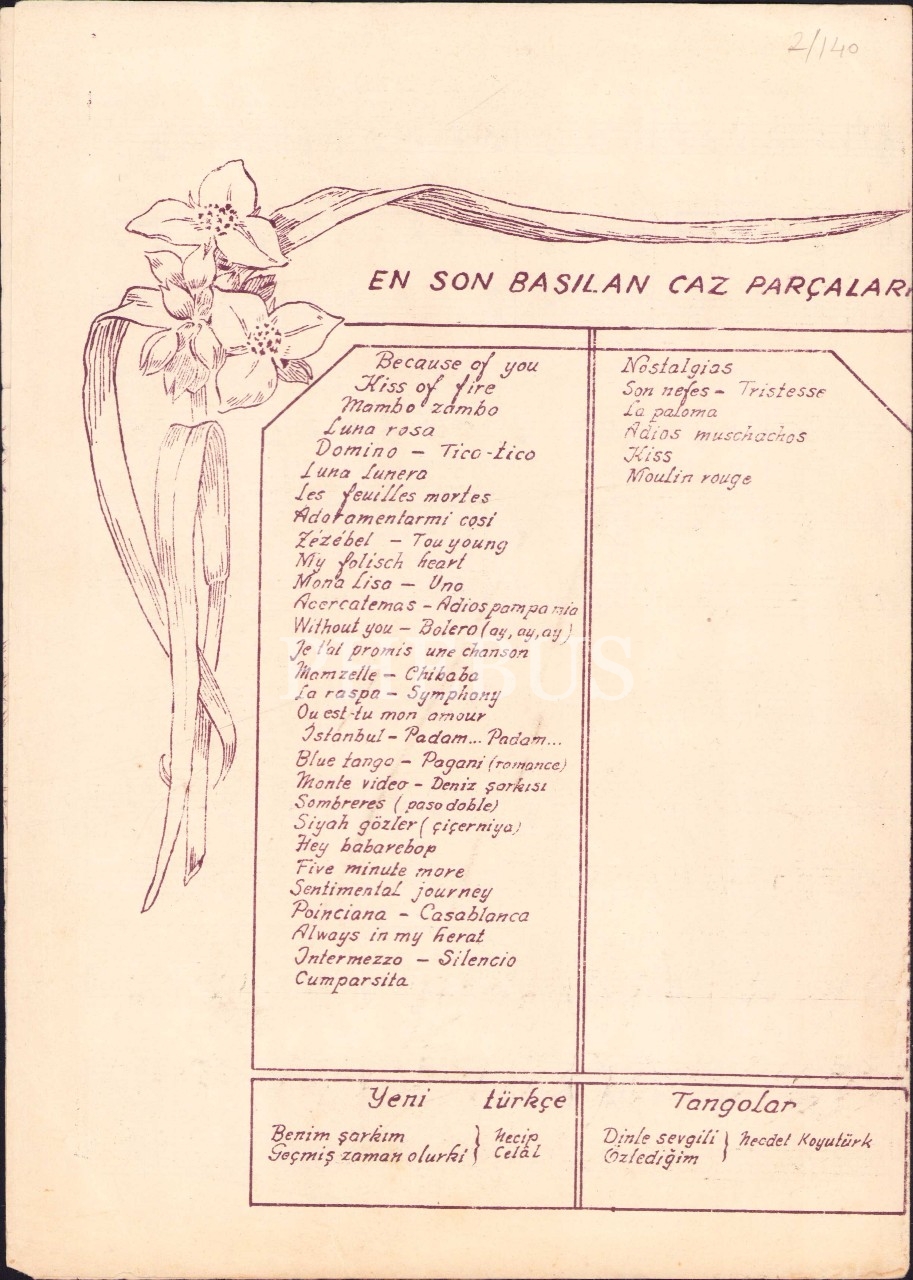 2/140
EN SON BASILAN CAZ PARÇALARI
Because of you
Kiss of fire
Mambo zambo
Luna rosa
Domino – Tico-tico
Luna lunera
Les feuilles mortes
Adoramentarmi cosi
Zézébel – Tou young
My folisch heart
Mona Lisa – Uno
Acercatemas – Adios pampa mia
Without you – Bolero (ay, ay, ay)
Je t'ai promis une chanson
Mamzelle – Chibaba
La raspa – Symphony
Ou est-tu mon amour
İstanbul – Padam... Padam...
Blue tango – Pagani (romance)
Monte video – Deniz şarkısı
Sombreres (paso doble)
Siyah gözler (çiçerniya)
Hey babarebop
Five minute more
Sentimental journey
Poinciana – Casablanca
Always in my herat
Intermezzo – Silencio
Cumparsita
Nostalgias
Son nefes – Tristesse
La paloma
Adios muschachos
Kiss
Moulin rouge
Yeni türkçe Tangolar
Benim şarkım } Necip
Geçmiş zaman olurki } Celâl
Dinle sevgili } Necdet Koyutürk
Özlediğim